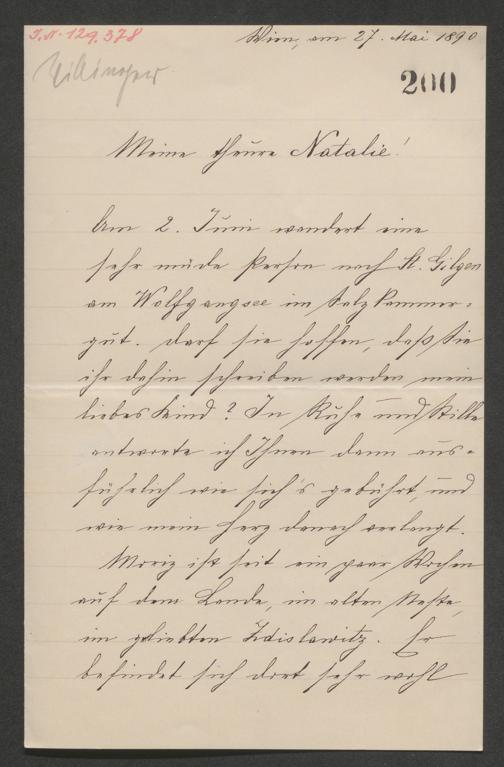 I.N. 129.378
Wien, am 27. Mai 1890
200
Meine theure Natalie!
Am 2. Juni wandert eine
sehr müde Person nach St. Gilgen
am Wolfgangsee im Salzkammer-
gut. Darf sie hoffen, daß Sie
ihr dahin schreiben werden, mein
liebes Kind? In Ruhe und Stille
antworte ich Ihnen dann aus-
führlich wie sich's gebührt, und
wie mein Herz danach verlangt.
Moriz ist seit ein paar Wochen
auf dem Lande, im alten Neste,
im geliebten Zdislawitz. Er
befindet sich dort sehr wohl